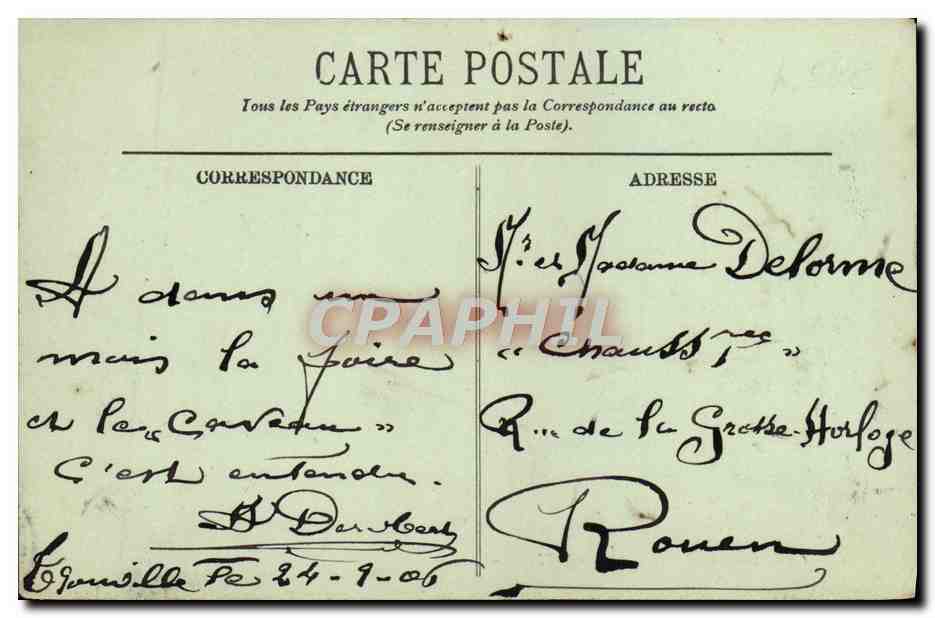 CARTE POSTALE
Tous les Pays étrangers n'acceptent pas la Correspondance au recto
(Se renseigner à la Poste).
CORRESPONDANCE
A dans un
mois la foire
et le "Caveau"
C'est entendu.
ADRESSE
Mr et Madame Delorme
"Chauss
R... de la Grosse-Horloge
Rouen
Trouville le 24-9-06
CPAPHIL